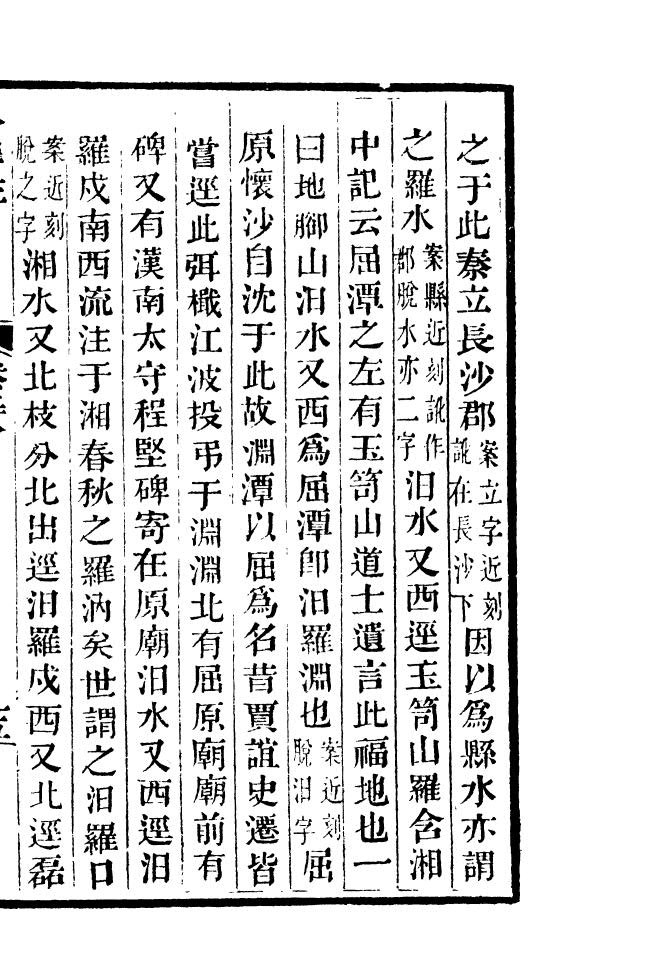 之于此秦立長沙郡案立字近刻訛在長沙下因以為縣水亦謂
之羅水案縣近刻訛作郡脫水亦二字汨水又西逕玉笥山羅含湘
中記云屈潭之左有玉笥山道士遺言此福地也一
曰地腳山汨水又西為屈潭卽汨羅淵也案近刻脫汨字屈
原懷沙自沈于此故淵潭以屈為名昔賈誼史遷皆
嘗逕此弭檝江波投弔于淵淵北有屈原廟廟前有
碑又有漢南太守程堅碑寄在原廟汨水又西逕汨
羅戍南西流注于湘春秋之羅汭矣世謂之汨羅口
案近刻脫之字湘水又北枝分北出逕汨羅戍西又北逕磊